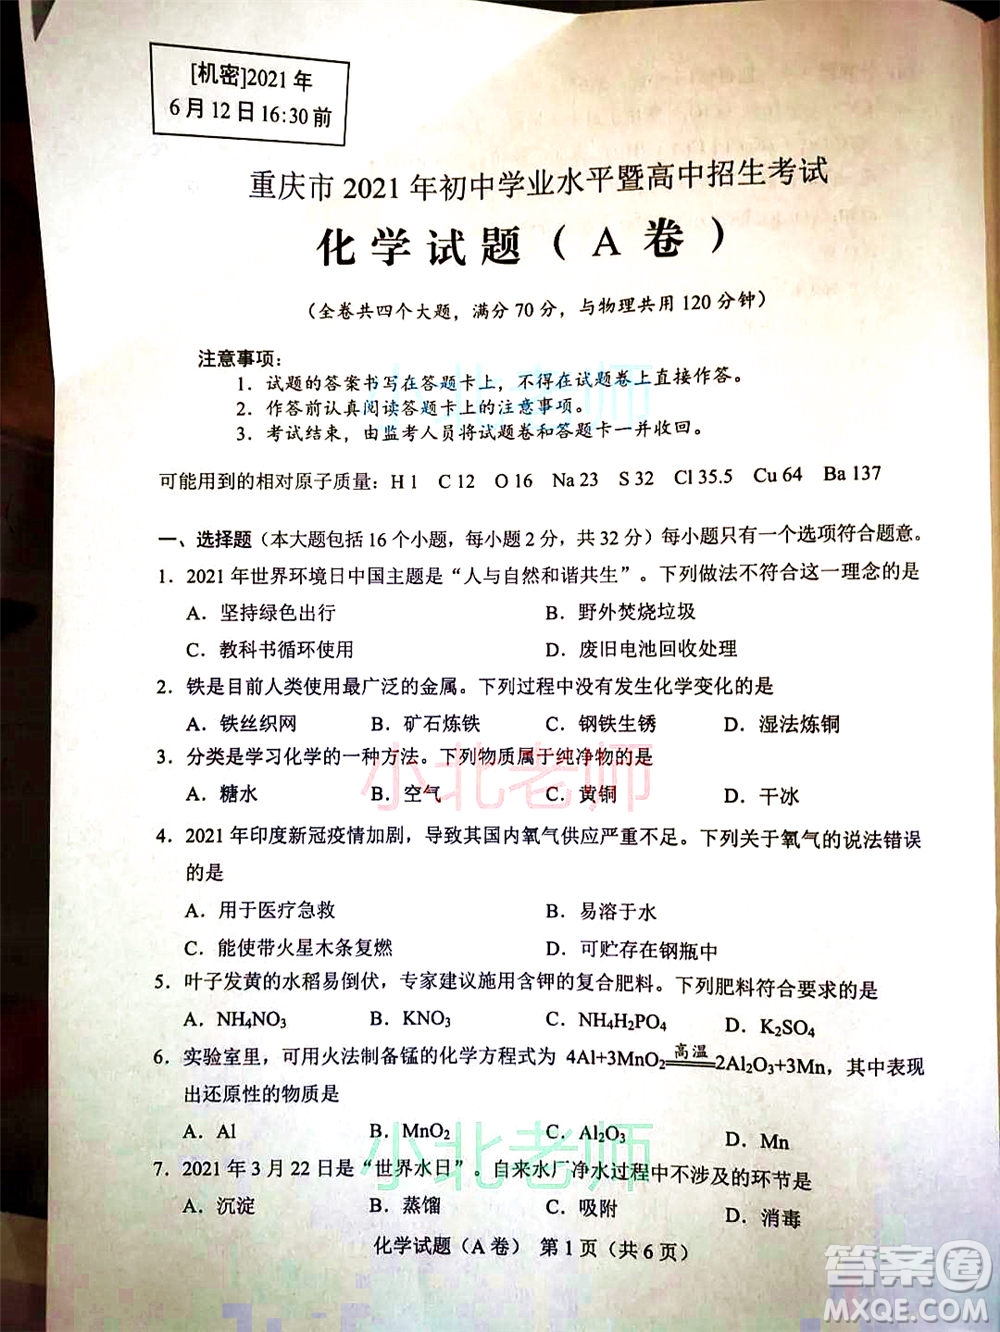 [机密]2021年
6月12日16:30前
重庆市2021年初中学业水平暨高中招生考试
化学试题（A卷）
（全卷共四个大题，满分70分，与物理共用120分钟）
注意事项：
1．试题的答案书写在答题卡上，不得在试题卷上直接作答。
2．作答前认真阅读答题卡上的注意事项。
3．考试结束，由监考人员将试题卷和答题卡一并收回。
可能用到的相对原子质量：H 1 C 12 O 16 Na 23 S 32 Cl 35.5 Cu 64 Ba 137
一、选择题（本大题包括16个小题，每小题2分，共32分）每小题只有一个选项符合题意。
1．2021年世界环境日中国主题是“人与自然和谐共生”。下列做法不符合这一理念的是
A．坚持绿色出行 B．野外焚烧垃圾
C．教科书循环使用 D．废旧电池回收处理
2．铁是目前人类使用最广泛的金属。下列过程中没有发生化学变化的是
A．铁丝织网 B．矿石炼铁 C．钢铁生锈 D．湿法炼铜
3．分类是学习化学的一种方法。下列物质属于纯净物的是
A．糖水 B．空气 C．黄铜 D．干冰
4．2021年印度新冠疫情加剧，导致其国内氧气供应严重不足。下列关于氧气的说法错误
的是
A．用于医疗急救 B．易溶于水
C．能使带火星木条复燃 D．可贮存在钢瓶中
5．叶子发黄的水稻易倒伏，专家建议施用含钾的复合肥料。下列肥料符合要求的是
A．NH₄NO₃ B．KNO₃ C．NH₄H₂PO₄ D．K₂SO₄
6．实验室里，可用火法制备锰的化学方程式为 4Al+3MnO₂ 高温 2Al₂O₃+3Mn，其中表现
出还原性的物质是
A．Al B．MnO₂ C．Al₂O₃ D．Mn
7．2021年3月22日是“世界水日”。自来水厂净水过程中不涉及的环节是
A．沉淀 B．蒸馏 C．吸附 D．消毒
化学试题（A卷） 第1页（共6页）
小北老师
小北老师
小北老师
答案圈
MXQE.COM